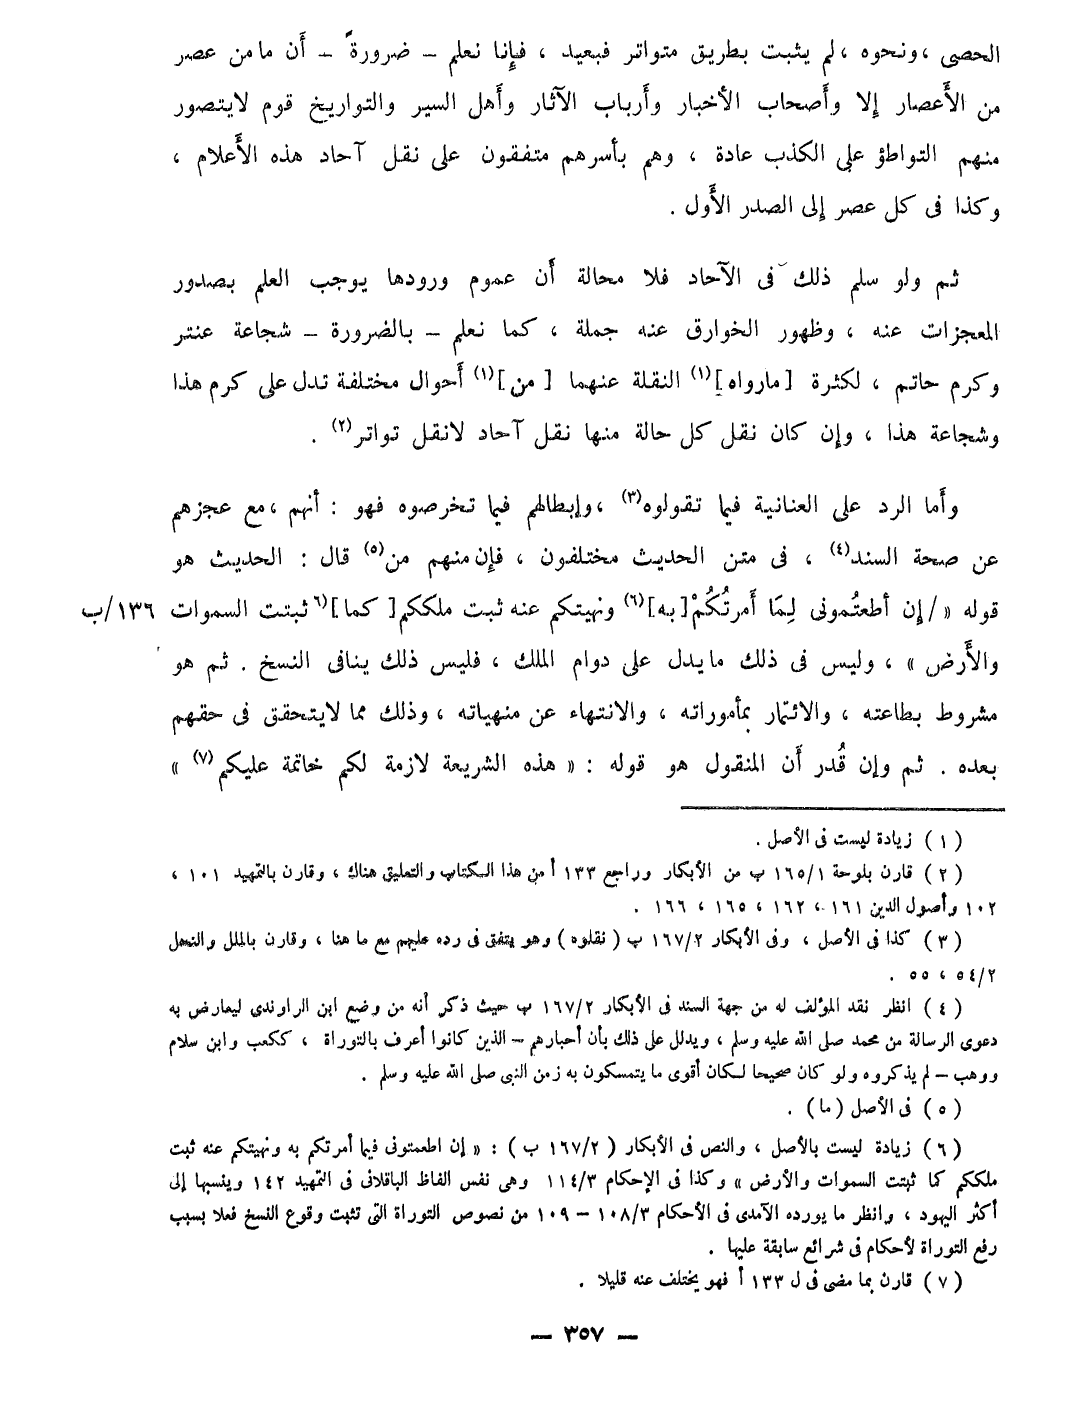 الحصى ، ونحوه ، لم يثبت بطريق متواتر فبعيد ، فإنا نعلم – ضرورةً – أَن ما من عصر
من الأَعصار إلا وأَصحاب الأخبار وأَرباب الآثار وأَهل السير والتواريخ قوم لا يتصور
منهم التواطؤ على الكذب عادة ، وهم بأسرهم متفقون على نقل آحاد هذه الأَعلام ،
وكذا فى كل عصر إلى الصدر الأَول .
ثم ولو سلم ذلك فى الآحاد فلا محالة أَن عموم ورودها يوجب العلم بصدور
المعجزات عنه ، وظهور الخوارق عنه جملة ، كما نعلم – بالضرورة – شجاعة عنتر
وكرم حاتم ، لكثرة [مارواه](١) النقلة عنهما [ من ](١) أَحوال مختلفة تدل على كرم هذا
وشجاعة هذا ، وإن كان نقل كل حالة منها نقل آحاد لانقل تواتر(٢) .
وأَما الرد على العنانية فيما تقولوه(٣) ، وإبطالهم فيما تخرصوه فهو : أنهم ، مع عجزهم
عن صحة السند(٤) ، فى متن الحديث مختلفون ، فإن منهم من(٥) قال : الحديث هو
قوله « / إن أطعتُمونى لِمَا أَمرتُكُمْ [به](٦) ونهيتكم عنه ثبت ملككم [ كما ](٦ ثبتت السموات ١٣٦/ب
والأَرض » ، وليس فى ذلك مايدل على دوام الملك ، فليس ذلك ينافى النسخ . ثم هو
مشروط بطاعته ، والائتمار بمأموراته ، والانتهاء عن منهياته ، وذلك مما لايتحقق فى حقهم
بعده . ثم وإن قُدر أَن المنقول هو قوله : « هذه الشريعة لازمة لكم خاتمة عليكم(٧) »
(١) زيادة ليست فى الأصل .
(٢) قارن بلوحة ١٦٥/١ ب من الأبكار وراجع ١٣٣ أ من هذا الكتاب والتعليق هناك ، وقارن بالتمهيد ١٠١ ،
١٠٢ وأصول الدين ١٦١ ، ١٦٢ ، ١٦٥ ، ١٦٦ .
(٣) كذا فى الأصل ، وفى الأبكار ١٦٧/٢ ب ( نقلوه ) وهو يتفق فى رده عليهم مع ما هنا ، وقارن بالملل والنحل
٥٤/٢ ، ٥٥ .
(٤) انظر نقد المؤلف له من جهة السند فى الأبكار ١٦٧/٢ ب حيث ذكر أنه من وضع ابن الراوندى ليعارض به
دعوى الرسالة من محمد صلى الله عليه وسلم ، ويدلل على ذلك بأن أحبارهم – الذين كانوا أعرف بالتوراة ، ككعب وابن سلام
ووهب – لم يذكروه ولو كان صحيحا لكان أقوى ما يتمسكون به زمن النبى صلى الله عليه وسلم .
(٥) فى الأصل (ما) .
(٦) زيادة ليست بالأصل ، والنص فى الأبكار ( ١٦٧/٢ ب ) : « إن اطعتمونى فيما أمرتكم به ونهيتكم عنه ثبت
ملككم كما ثبتت السموات والأرض » وكذا فى الإحكام ١١٤/٣ وهى نفس الفاظ الباقلانى فى التمهيد ١٤٢ وينسبها إلى
أكثر اليهود ، وانظر ما يورده الآمدى فى الأحكام ١٠٨/٣ – ١٠٩ من نصوص التوراة التى تثبت وقوع النسخ فعلا بسبب
رفع التوراة لأحكام فى شرائع سابقة عليها .
(٧) قارن بما مضى فى ل ١٣٣ أ فهو يختلف عنه قليلا .
– ٣٥٧ –